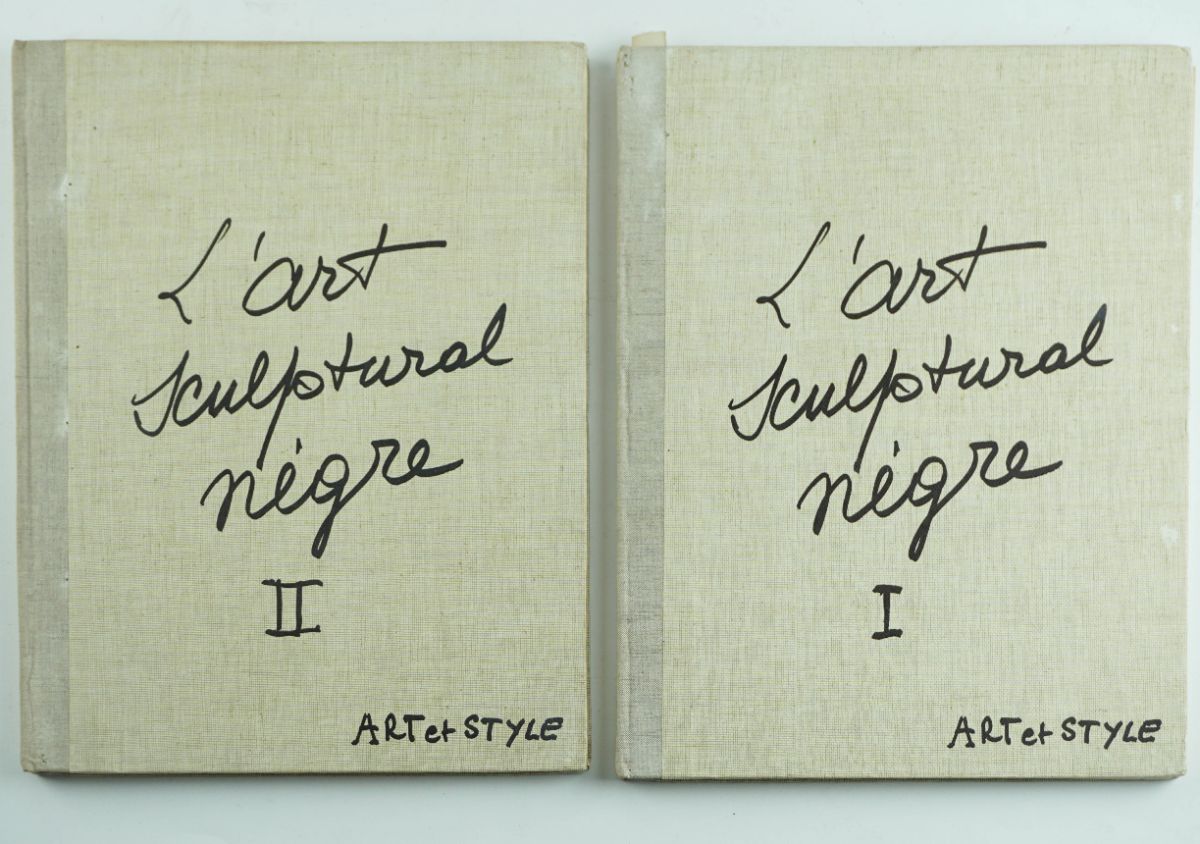 L'art
sculptural
nègre
II
ART et STYLE
L'art
sculptural
nègre
I
ART et STYLE